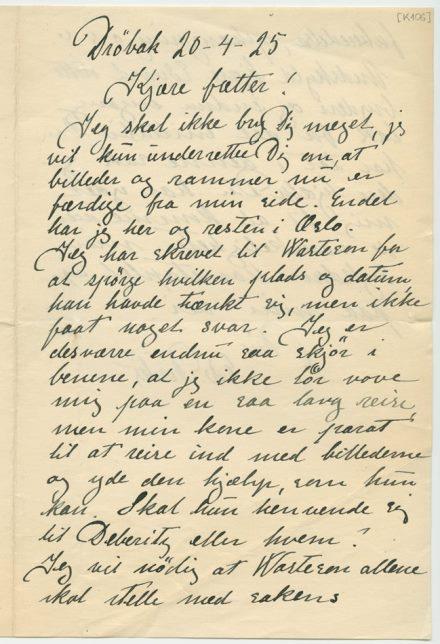 [K106]
Dröbak 20-4-25
Kjære fætter!
Jeg skal ikke bry Dig meget, jeg
vil kun underrette Dig om, at
billeder og rammer nu er
færdige fra min side. Endel
har jeg her og resten i Oslo.
Jeg har skrevet til Warteson for
at spörge hvilken plads og datum,
han havde tænkt sig, men ikke
faat noget svar. Jeg er
desværre endnu saa skjör i
benene, at jeg ikke tör vove
mig paa en saa lang reise,
men min kone er parat
til at reise ind med billederne
og yde den hjælp, som hun
kan. Skal hun henvende sig
til eller hvem?
Jeg vil nödig at Warteson allene
skal stelle med sakens